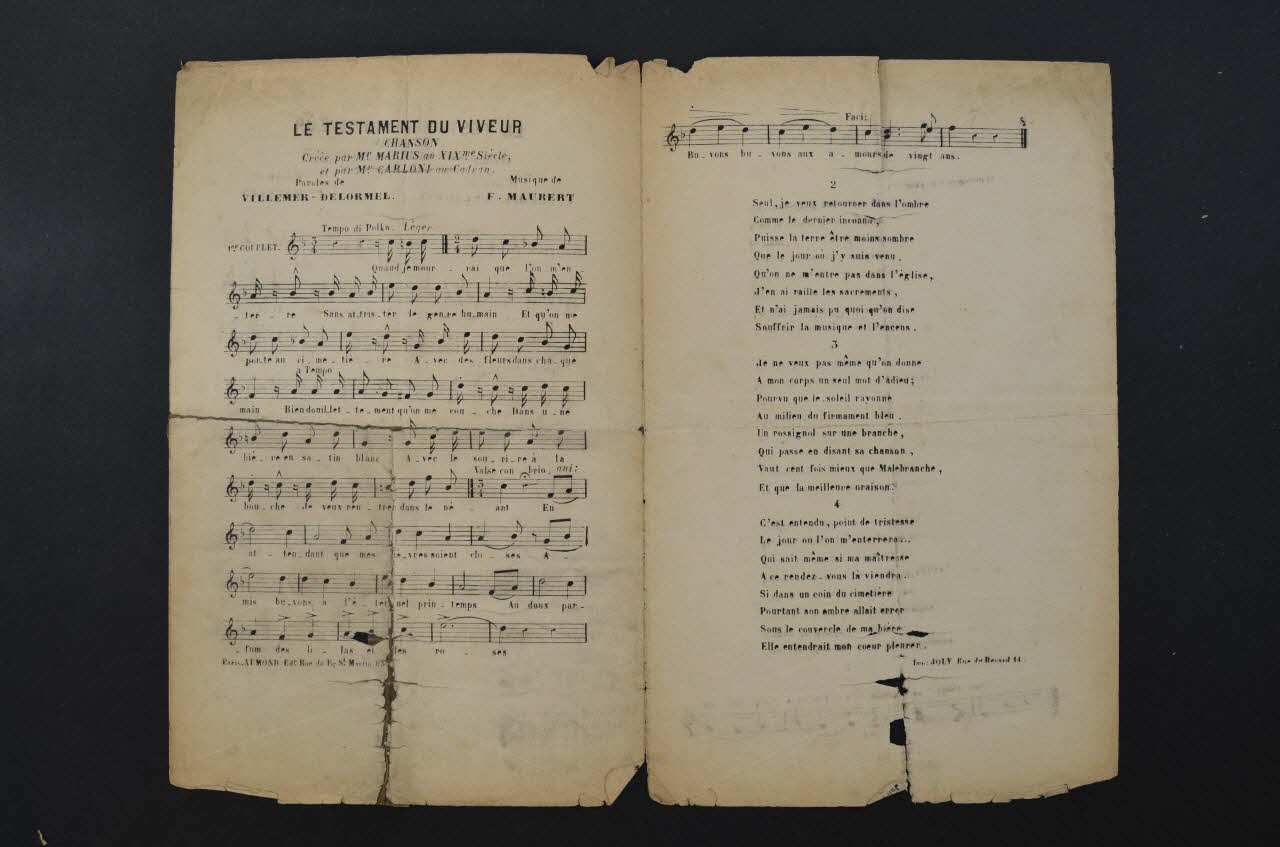 LE TESTAMENT DU VIVEUR
CHANSON
Créée par Mr MARIUS au XIXme Siècle,
et par Mr CARLONI au Cadran.
Paroles de
VILLEMER-DELORMEL.
Musique de
F. MAUBERT
Tempo di Polka. Léger
1er COUPLET.
Quand je mour - rai que l'on m'en
- ter - re Sans at-tris-ter le gen-re hu-main Et qu'on me
por-te au ci-me-tiè - re A-vec des fleurs dans cha-que
a Tempo
main Bien douil-let-te-ment qu'on me cou-che Dans u-ne
biè-re en sa-tin blanc A-vec le sou-ri-re à la
Valse con brio. ani:
bou-che Je veux ren-trer dans le né - ant En
at-ten-dant que mes lè-vres soient clo - ses A-
mis bu-vons a l'é-ter-nel prin-temps Au doux par-
-fum des li-las et des ro - ses
Paris. AUMOND Edr Rue du Fg St Martin 83
Faci:
Bu-vons bu-vons aux a-mours de vingt ans.
2
Seul, je veux retourner dans l'ombre
Comme le dernier inconnu,
Puisse la terre être moins sombre
Que le jour ou j'y suis venu.
Qu'on ne m'entre pas dans l'église,
J'en ai raillé les sacrements,
Et n'ai jamais pu quoi qu'on dise
Souffrir la musique et l'encens.
3
Je ne veux pas même qu'on donne
A mon corps un seul mot d'adieu;
Pourvu que le soleil rayonne
Au milieu du firmament bleu.
Un rossignol sur une branche,
Qui passe en disant sa chanson,
Vaut cent fois mieux que Malebranche,
Et que la meilleure oraison.
4
C'est entendu, point de tristesse
Le jour ou l'on m'enterrera...
Qui sait même si ma maîtresse
A ce rendez-vous là viendra.
Si dans un coin du cimetière
Pourtant son ombre allait errer
Sous le couvercle de ma bière
Elle entendrait mon coeur pleurer.
Imp: JOLY Rue du Renard 14